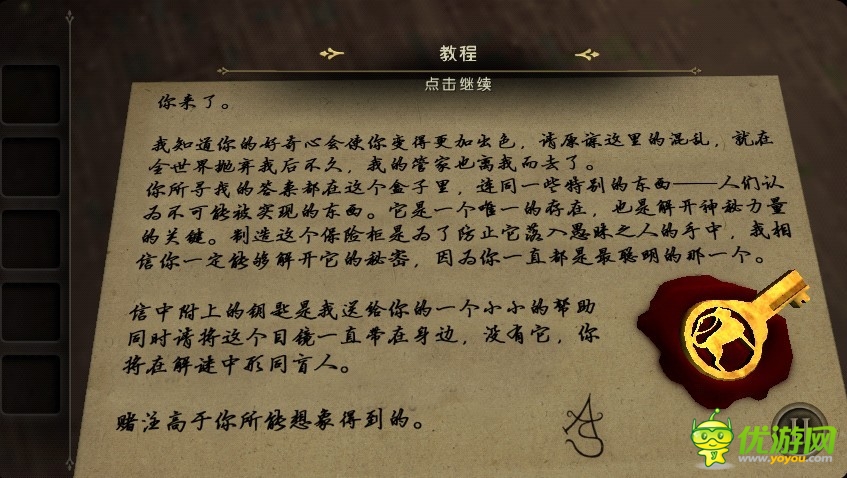 教程
点击继续
你来了。
我知道你的好奇心会使你变得更加出色，请原谅这里的混乱，就在
全世界抛弃我后不久，我的管家也离我而去了。
你所寻找的答案都在这个盒子里，连同一些特别的东西——人们认
为不可能被实现的东西。它是一个唯一的存在，也是解开神秘力量
的关键。制造这个保险柜是为了防止它落入愚昧之人的手中，我相
信你一定能够解开它的秘密，因为你一直都是最聪明的那一个。
信中附上的钥匙是我送给你的一个小小的帮助
同时请将这个目镜一直带在身边，没有它，你
将在解谜中形同盲人。
赌注高于你所能想象得到的。
AS
优游网
www.yoyou.com